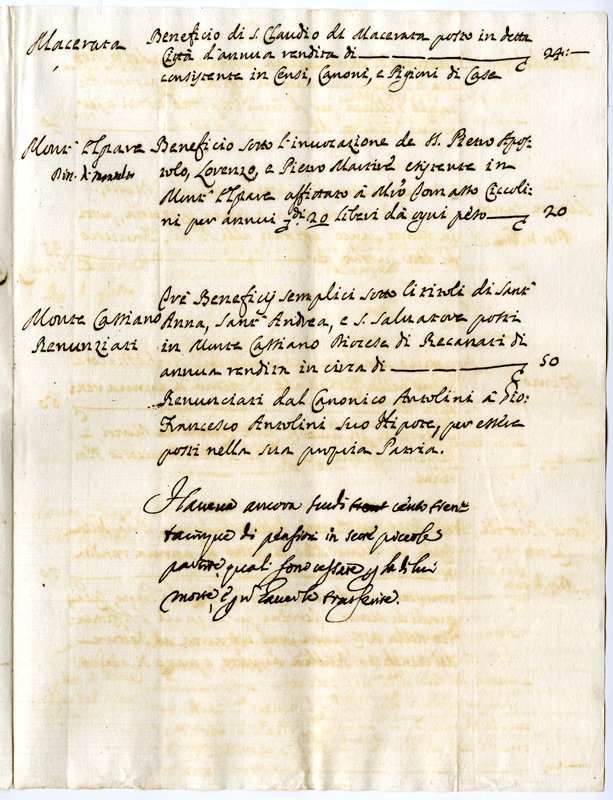 Macerata
Beneficio di S. Claudio di Macerata posto in detta
Città d'annua rendita di 24:
consistente in Censi, Canoni, e Pigioni di Case
Mont' Elpare
Beneficio sotto l'invocazione de SS. Pietro Apos-
tolo, Lorenzo, e Pietro Martire esistente in
Mont' Elpare affittato à Tomasso Ciccoli-
ni per annui 20 liberi dà ogni peso 20
Monte Cassiano
Renunziati
Trè Beneficij semplici sotto li titoli di Sant'
Anna, Sant' Andrea, e S. Salvatore posti
in Monte Cassiano Diocese di Recanati di
annua rendita in circa di 50
Renunciati dal Canonico Antolini à Gio:
Francesco Antolini suo Nipote, per essere
posti nella sua propria Patria.
Haveva ancora scudi cento tren-
tacinque di pensioni in sette piccole
partite, quali sono cessate di lui
morte, haverle trasferite.